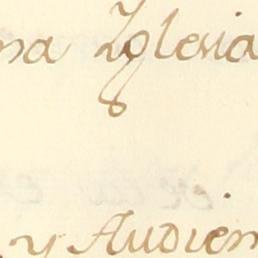 na Yglesia
y Audien